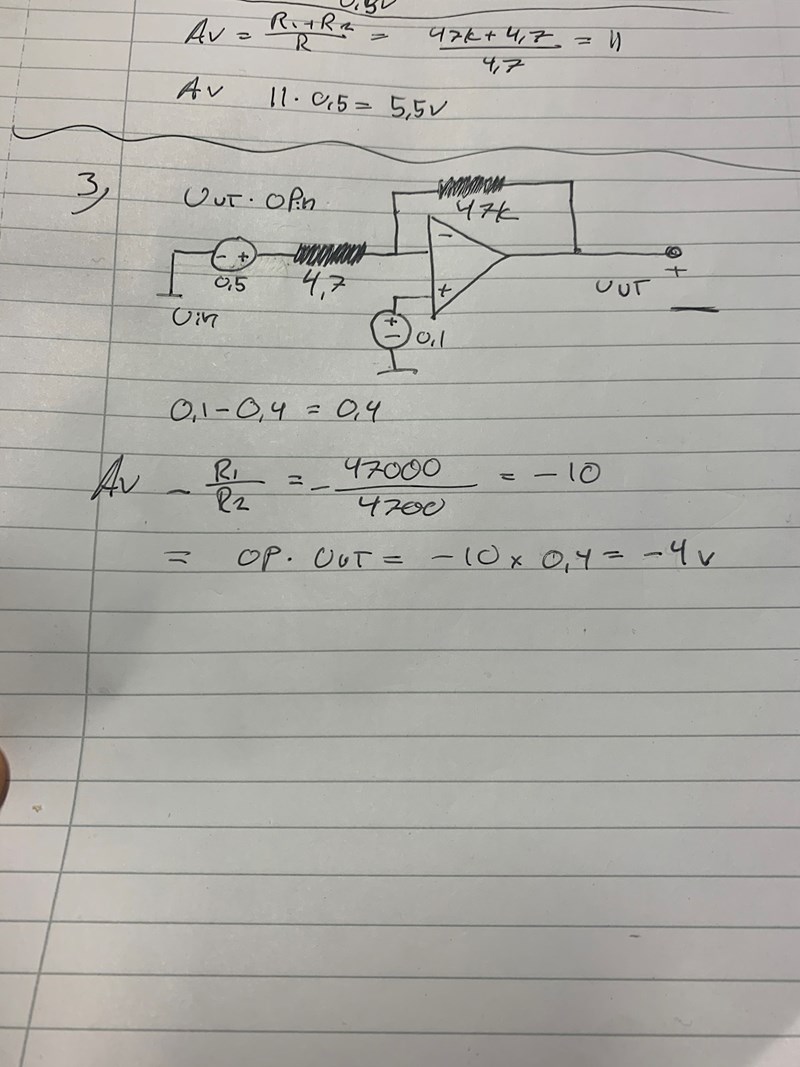 Av = R1+R2 / R = 47k+4,7 / 4,7 = 11
Av 11 · 0,5 = 5,5v
3,
OUT · OPin
47k
- +
0,5
4,7
-
+
Uin
+
-
0,1
OUT
+
0,1 - 0,4 = 0,4
Av - R1 / R2 = - 47000 / 4700 = -10
= OP · OUT = -10 x 0,4 = -4 v